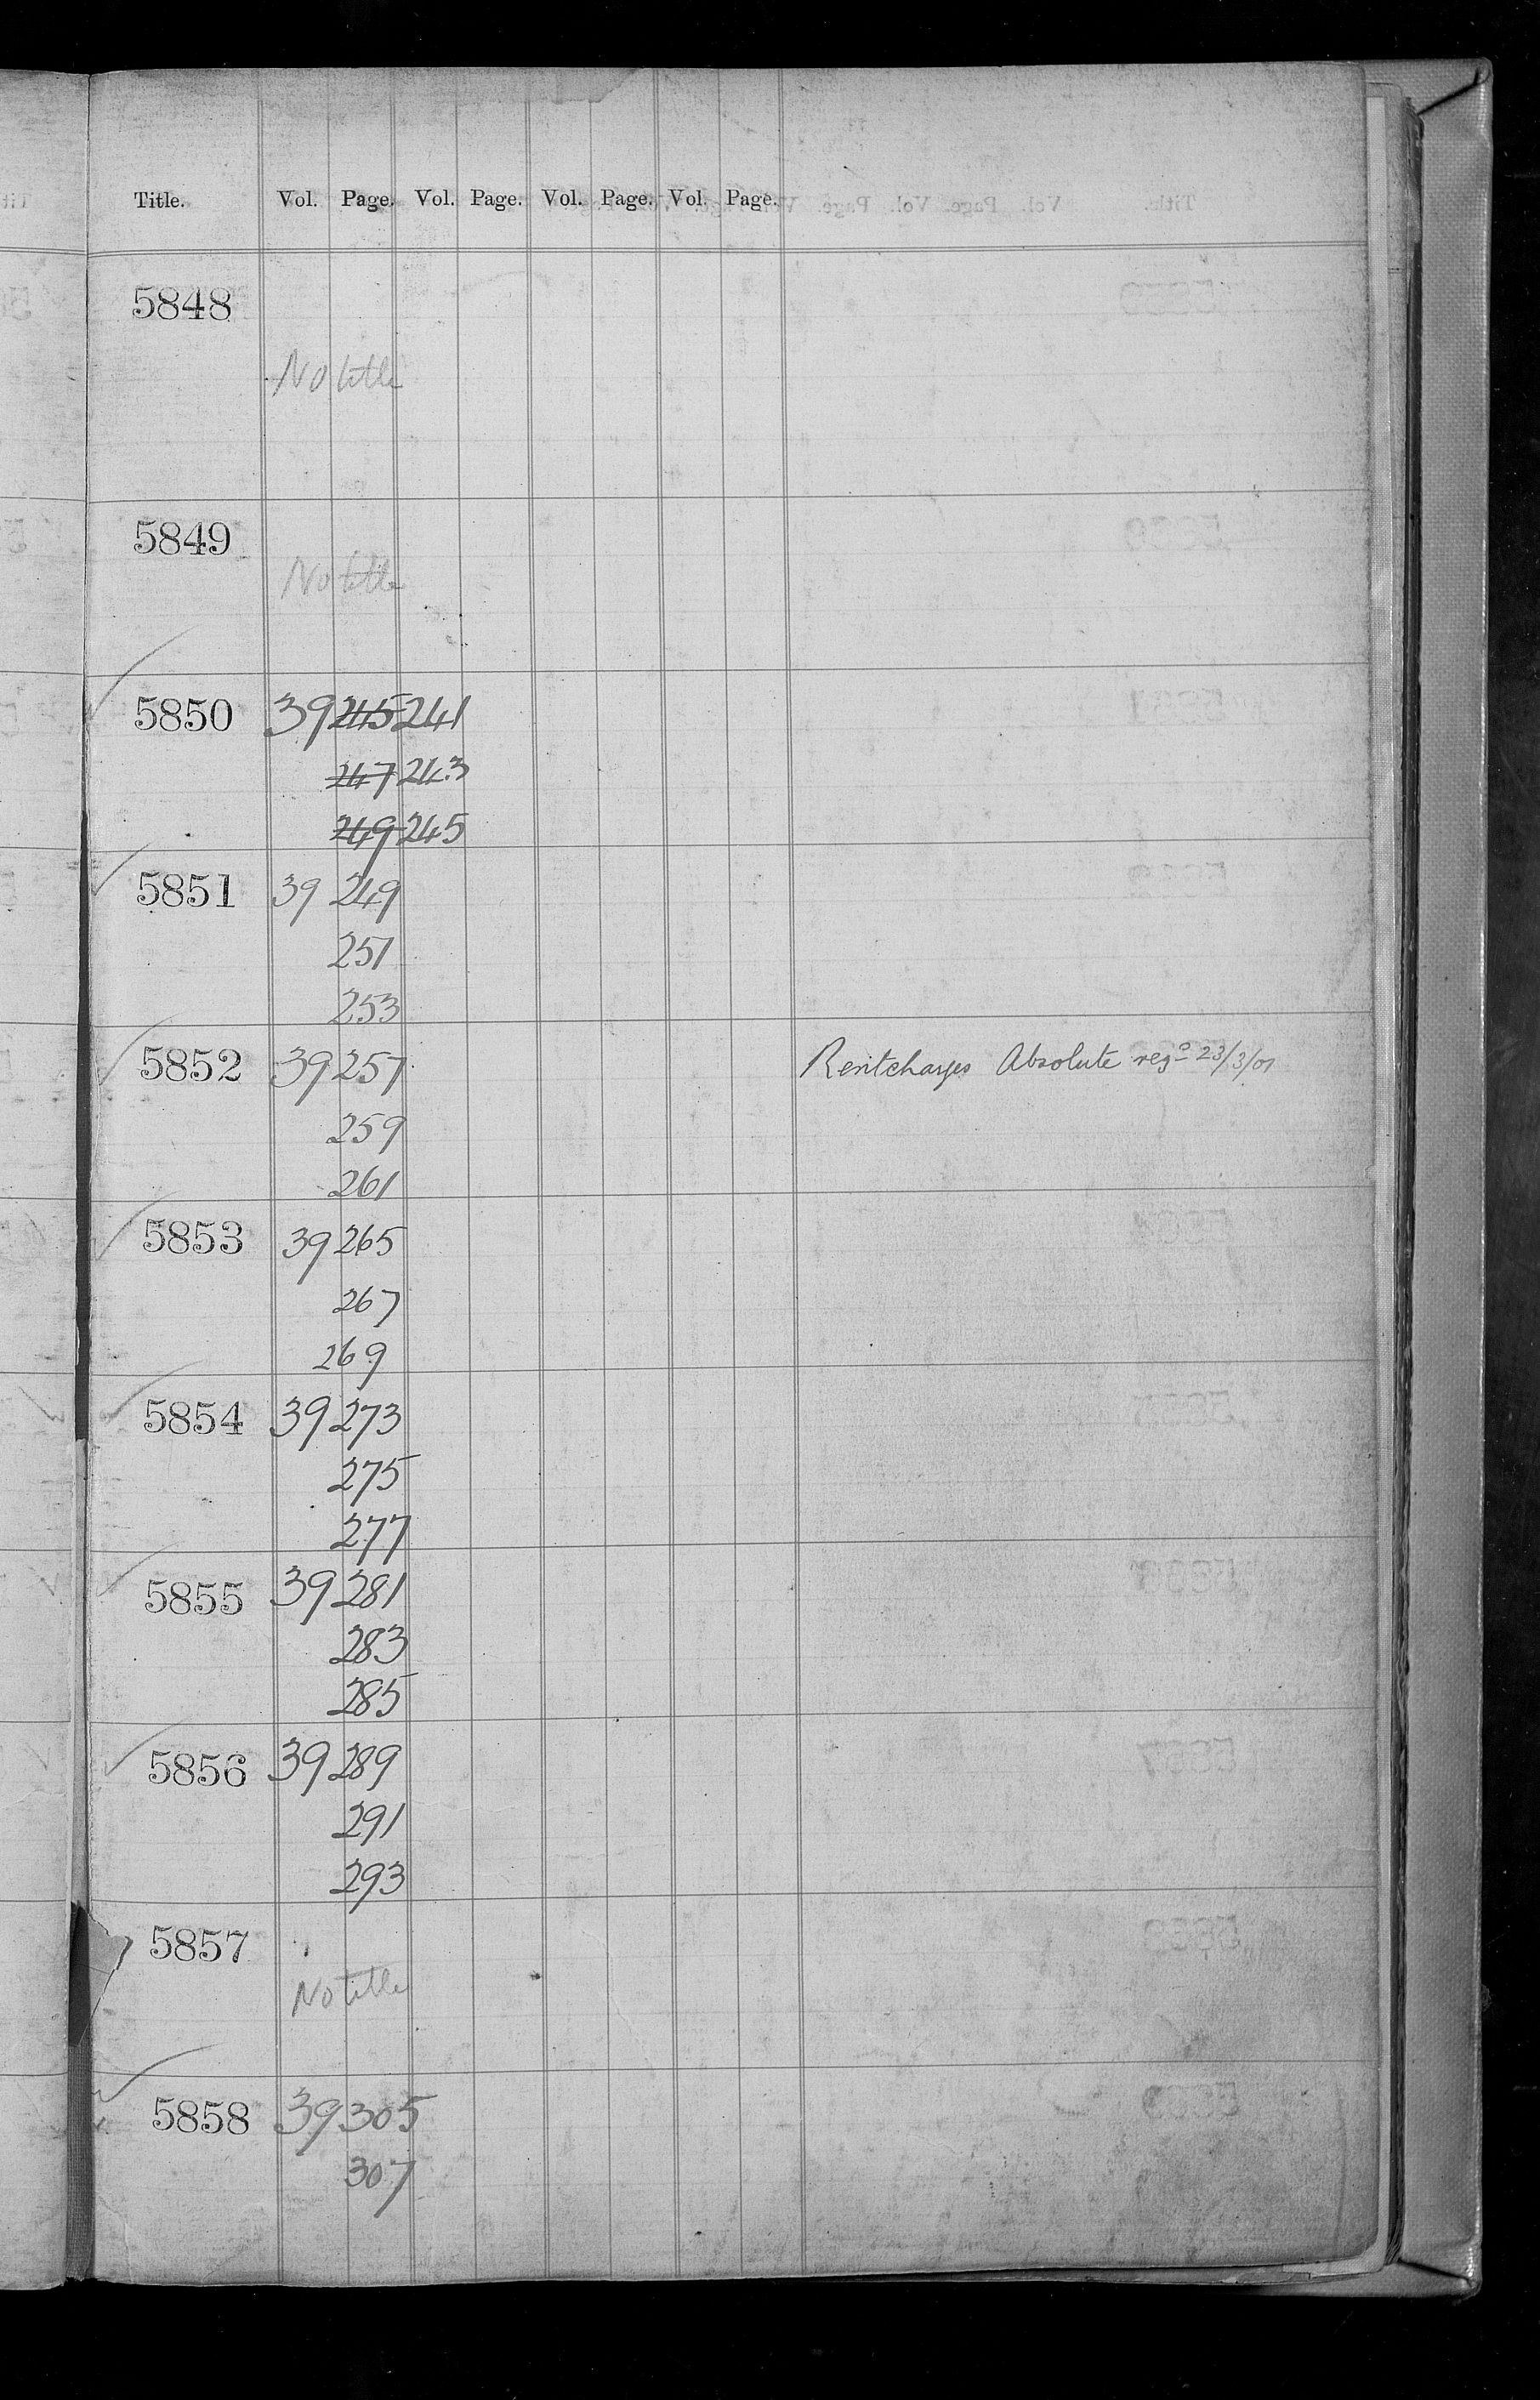 Title. Vol. Page. Vol. Page. Vol. Page. Vol. Page.
5848
No title
5849
No title
5850 39 245 241
247 243
249 245
5851 39 249
251
253
5852 39 257 Rentcharges Absolute rego 23/3/01
259
261
5853 39 265
267
269
5854 39 273
275
277
5855 39 281
283
285
5856 39 289
291
293
5857
No title
5858 39 305
307